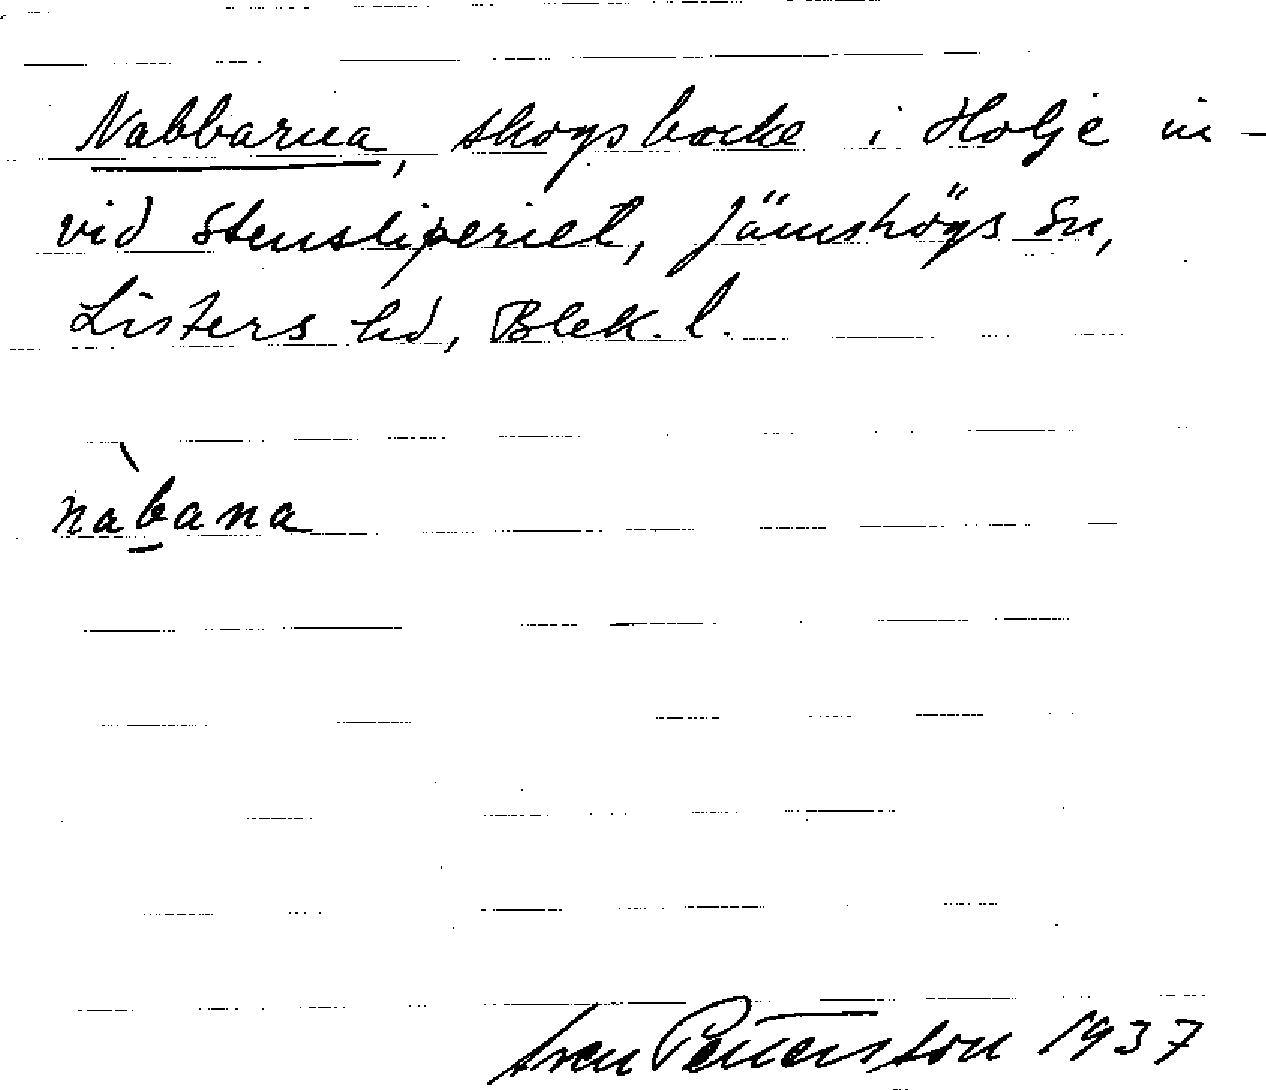 Nabbarna, skogsbacke i Holje in-
vid Stensliperiet, Jämshögs Sn,
Listers hd, Blek. l.
nàbana
Sven Petterson 1937